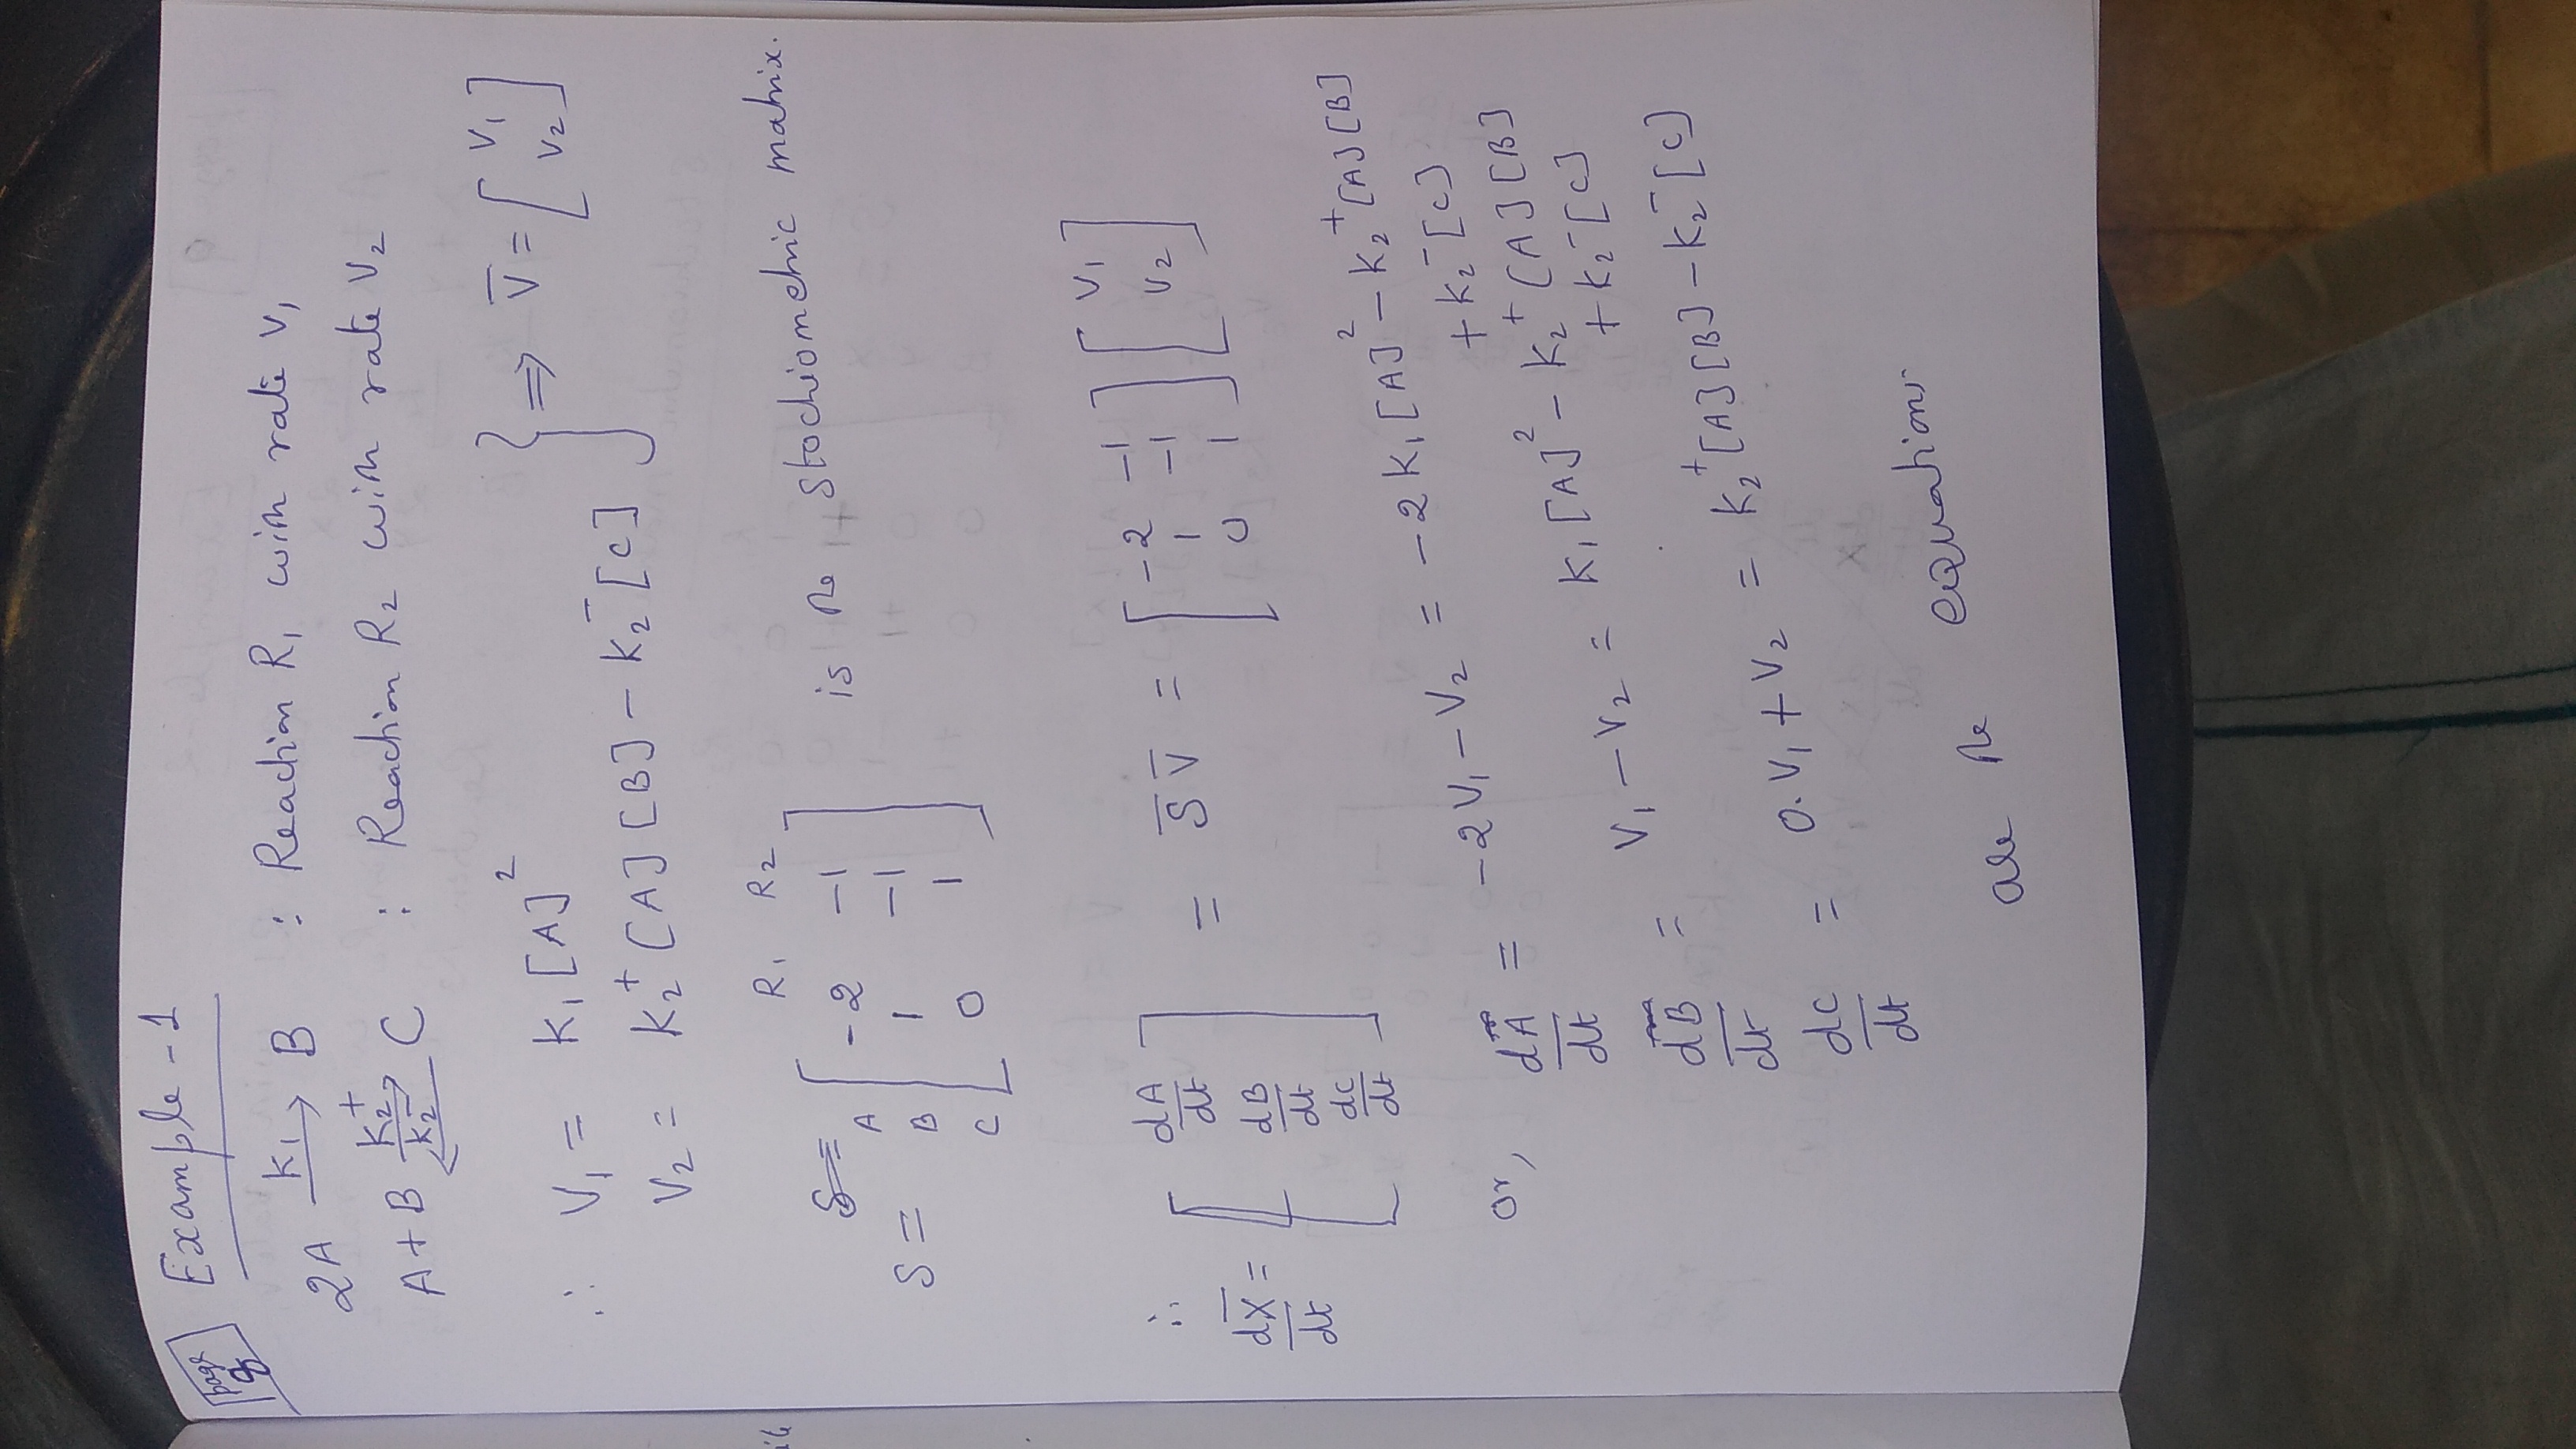 page 8
Example - 1
2A —k₁→ B : Reaction R₁ with rate V₁
A + B ⇌ C (k₂⁺, k₂⁻) : Reaction R₂ with rate V₂
∴ V₁ = k₁[A]²
V₂ = k₂⁺[A][B] - k₂⁻[C] } ⇒ V̅ = [V₁ V₂]
R₁ R₂
S =
A [ -2 -1 ] is the stochiometric matrix.
S = B [ 1 -1 ]
C [ 0 1 ]
∴
dX̅/dt = [ dA/dt dB/dt dC/dt ] = S̅ V̅ = [ -2 -1
1 -1
0 1 ] [ V₁ V₂ ]
or, dA/dt = -2V₁ - V₂ = -2k₁[A]² - k₂⁺[A][B]
+ k₂⁻[C]
dB/dt = V₁ - V₂ = k₁[A]² - k₂⁺[A][B]
+ k₂⁻[C]
dC/dt = 0.V₁ + V₂ = k₂⁺[A][B] - k₂⁻[C]
are the equations